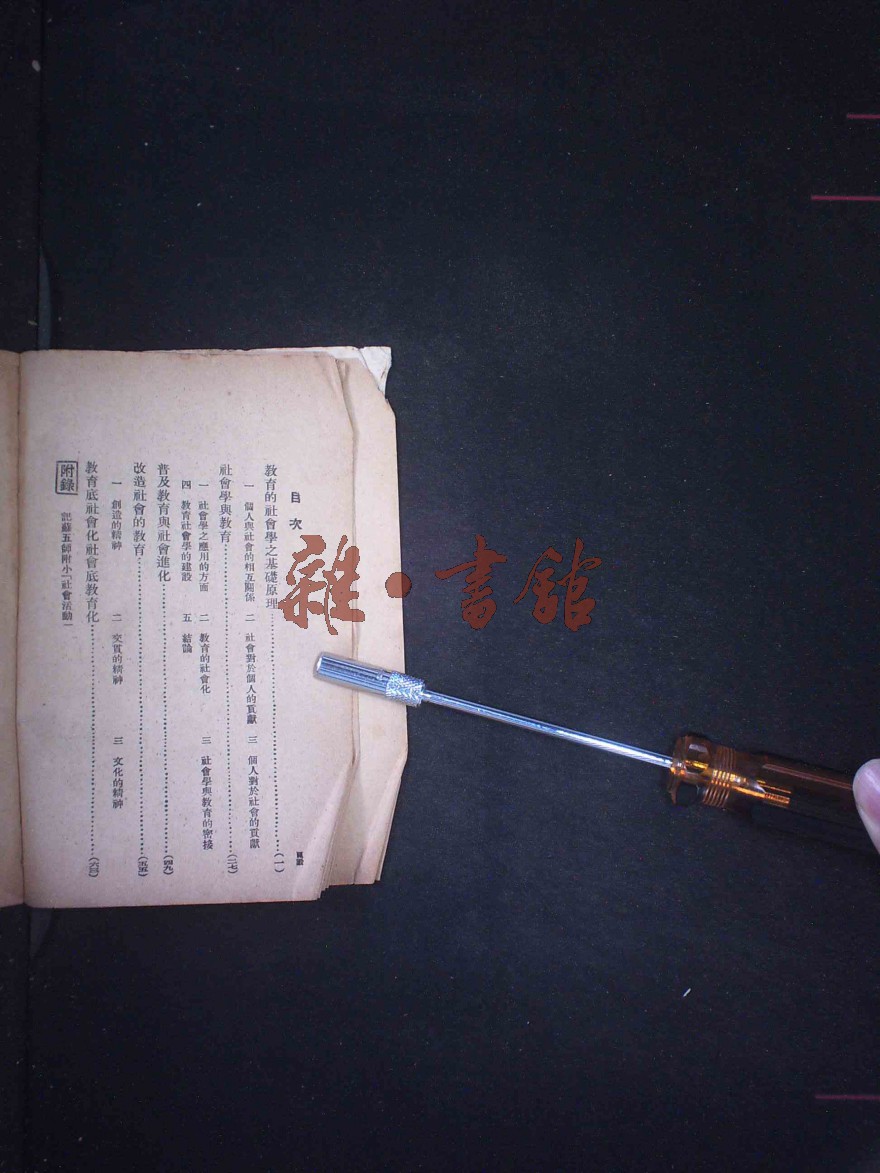 目次
頁數
教育的社會學之基礎原理……(一)
一 個人與社會的相互關係 二 社會對於個人的貢獻 三 個人對於社會的貢獻
社會學與教育……(二七)
一 社會學之應用的方面 二 教育的社會化 三 社會學與教育的密接
四 教育社會學的建設 五 結論
普及教育與社會進化……(四九)
改造社會的教育……(五五)
一 創造的精神 二 交貫的精神 三 文化的精神
教育底社會化社會底教育化……(六三)
附錄 記蘇五師附小「社會活動」
雜·書館